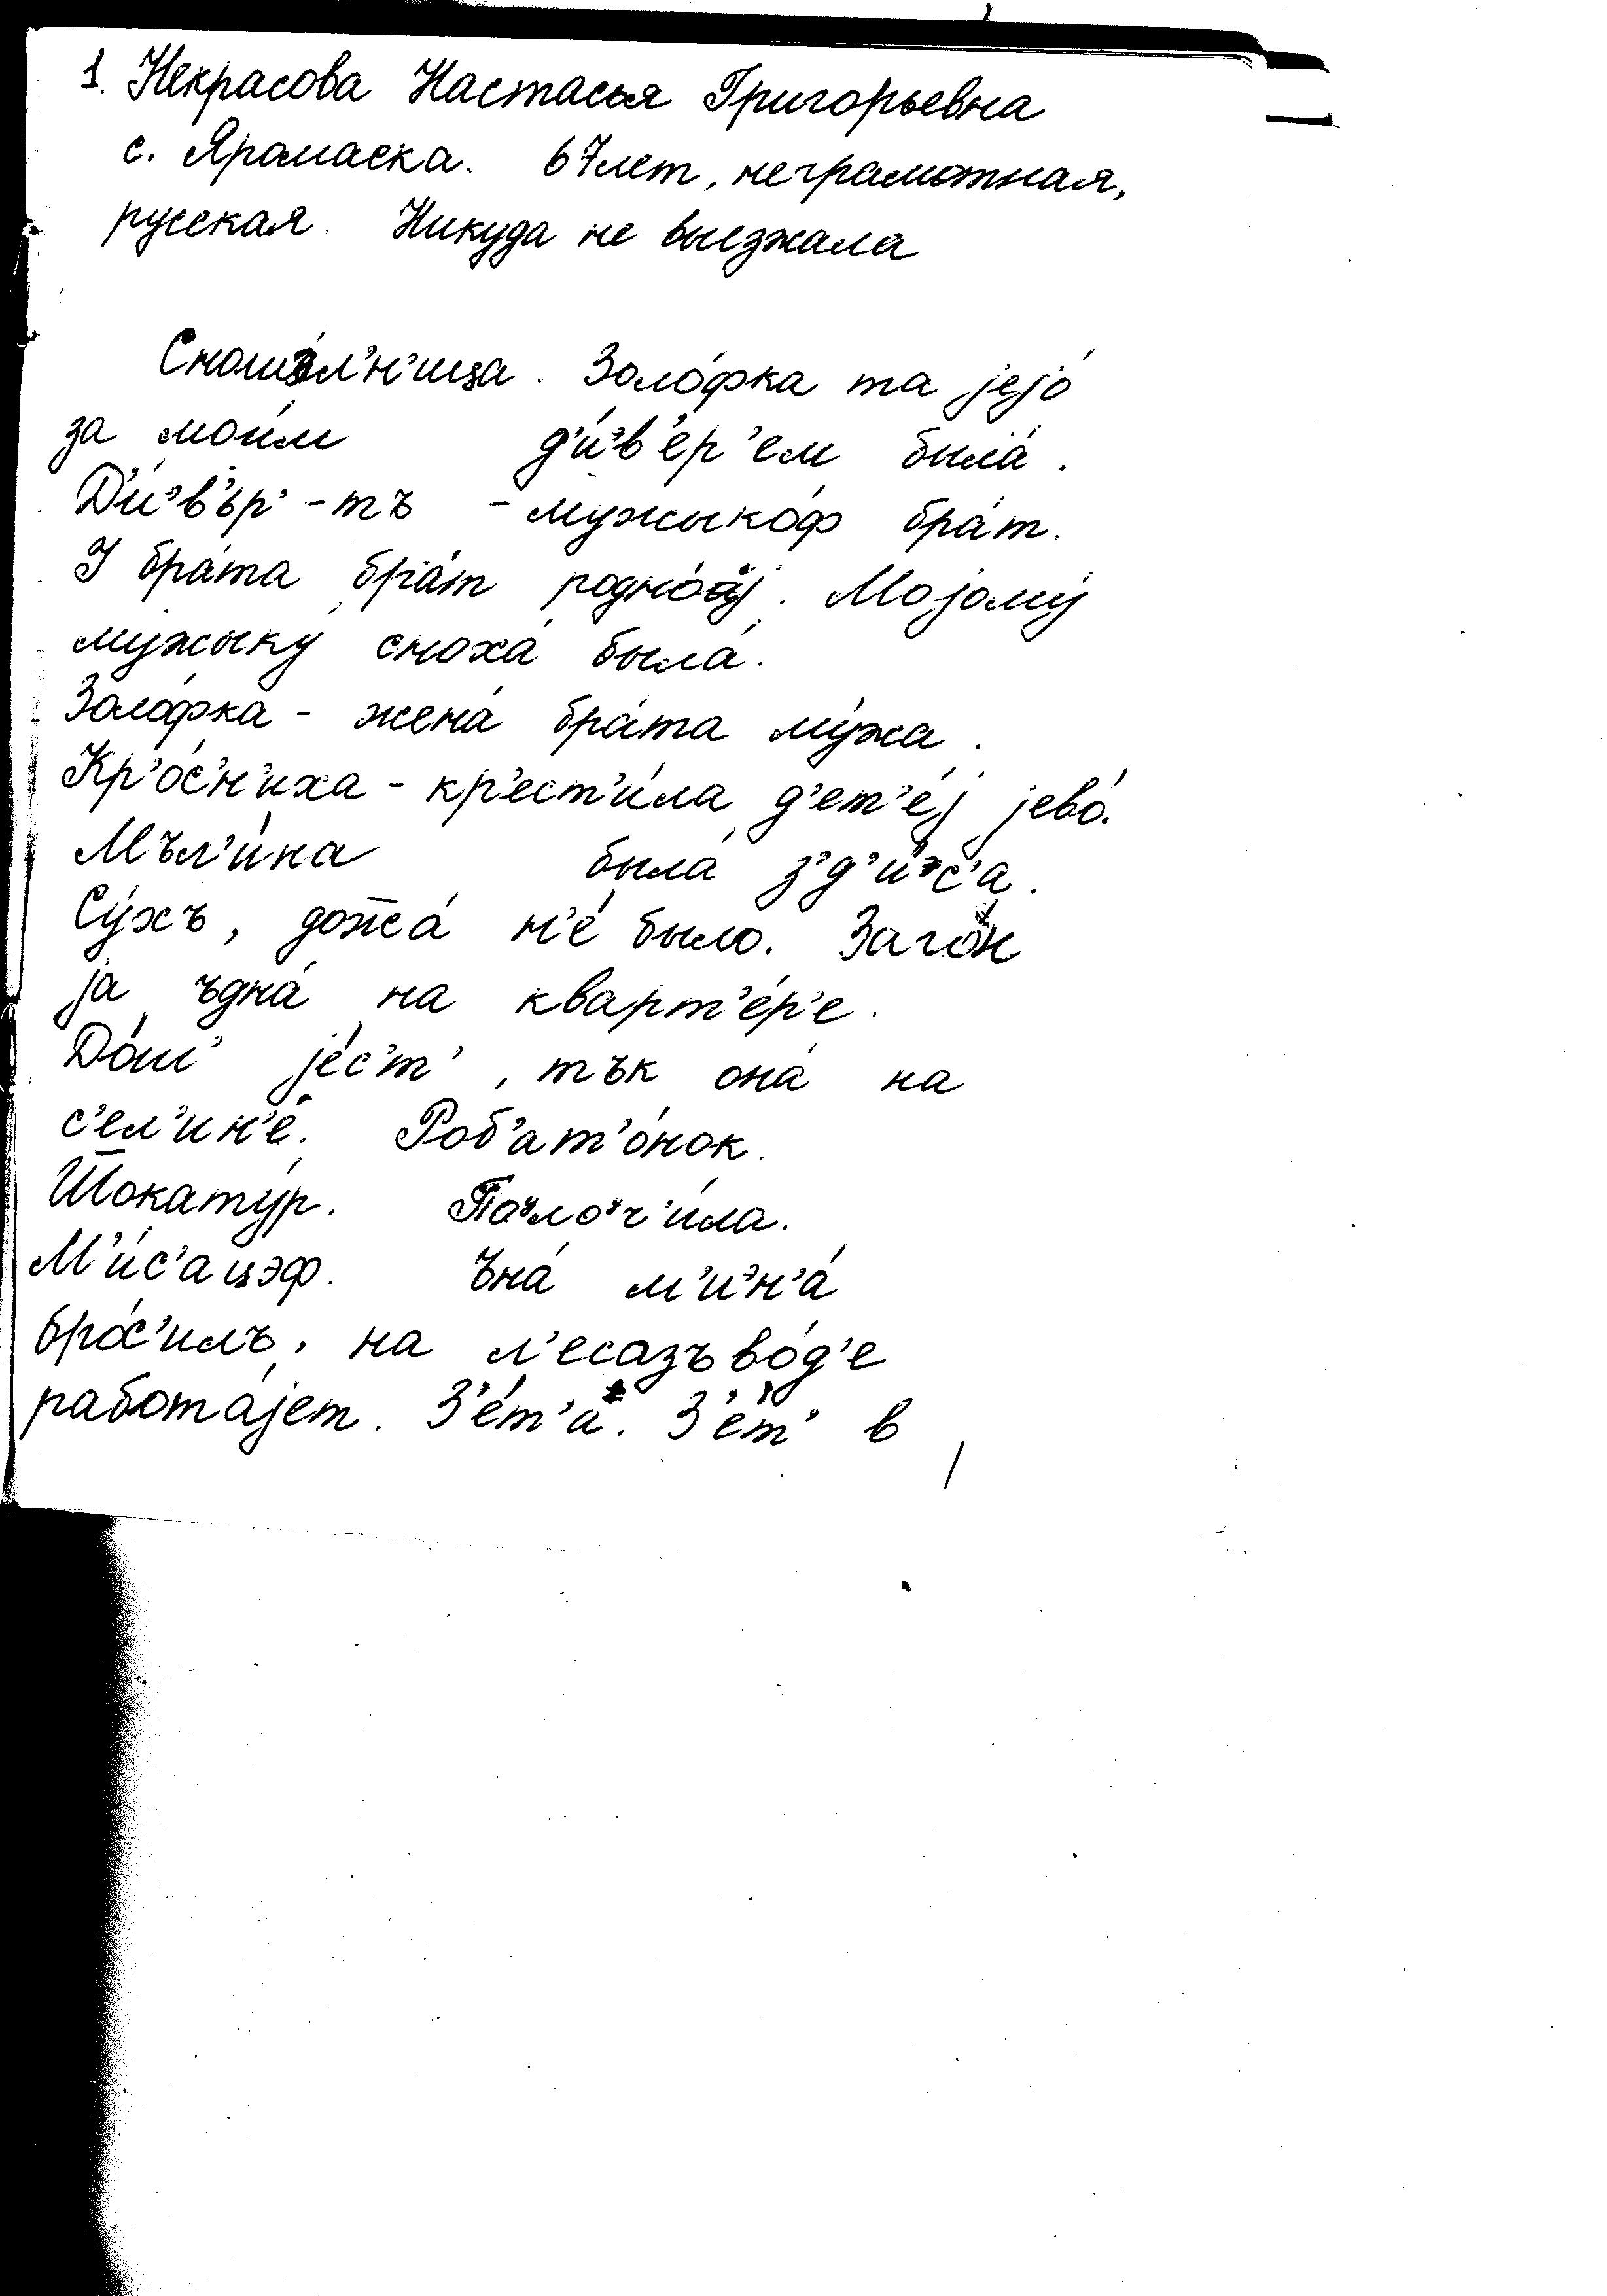 1. Некрасова Настасья Григорьевна
с. Ярамаска. 67 лет, неграмотная,
русская. Никуда не выезжала
Сноше́л'н'ица. Золо́фка та jеjо́
за мои́м д'и́ᵊв'ер'ем была́.
Д'и́ᵊв'ър'-тъ - мужыко́ф бра́т.
I бра́та бра́т родно́j. Моjому́
мужыку́ сноха́ была́.
Золо́фка - жена́ бра́та му́жа.
Кр'о́с'н'иха - кр'ест'и́ла д'ет'е́j jево́.
Мъл'и́на была́ з'д'и́ᵊс'а.
Су́хъ, дожа́ н'е́ было. Заго́н
jа ъдна́ на кварт'е́р'е.
До́ш' jе́с'т', тък она́ на
с'ел'ин'е́. Роб'ат'о́нок.
Шокату́р. Поᵘлоᵘч'и́ла.
М'и́с'ацэф. Ъна́ м'иᵊн'а́
бро́с'илъ, на л'есазъво́д'е
рабо́таjет. З'е́т'а. З'е́т' в